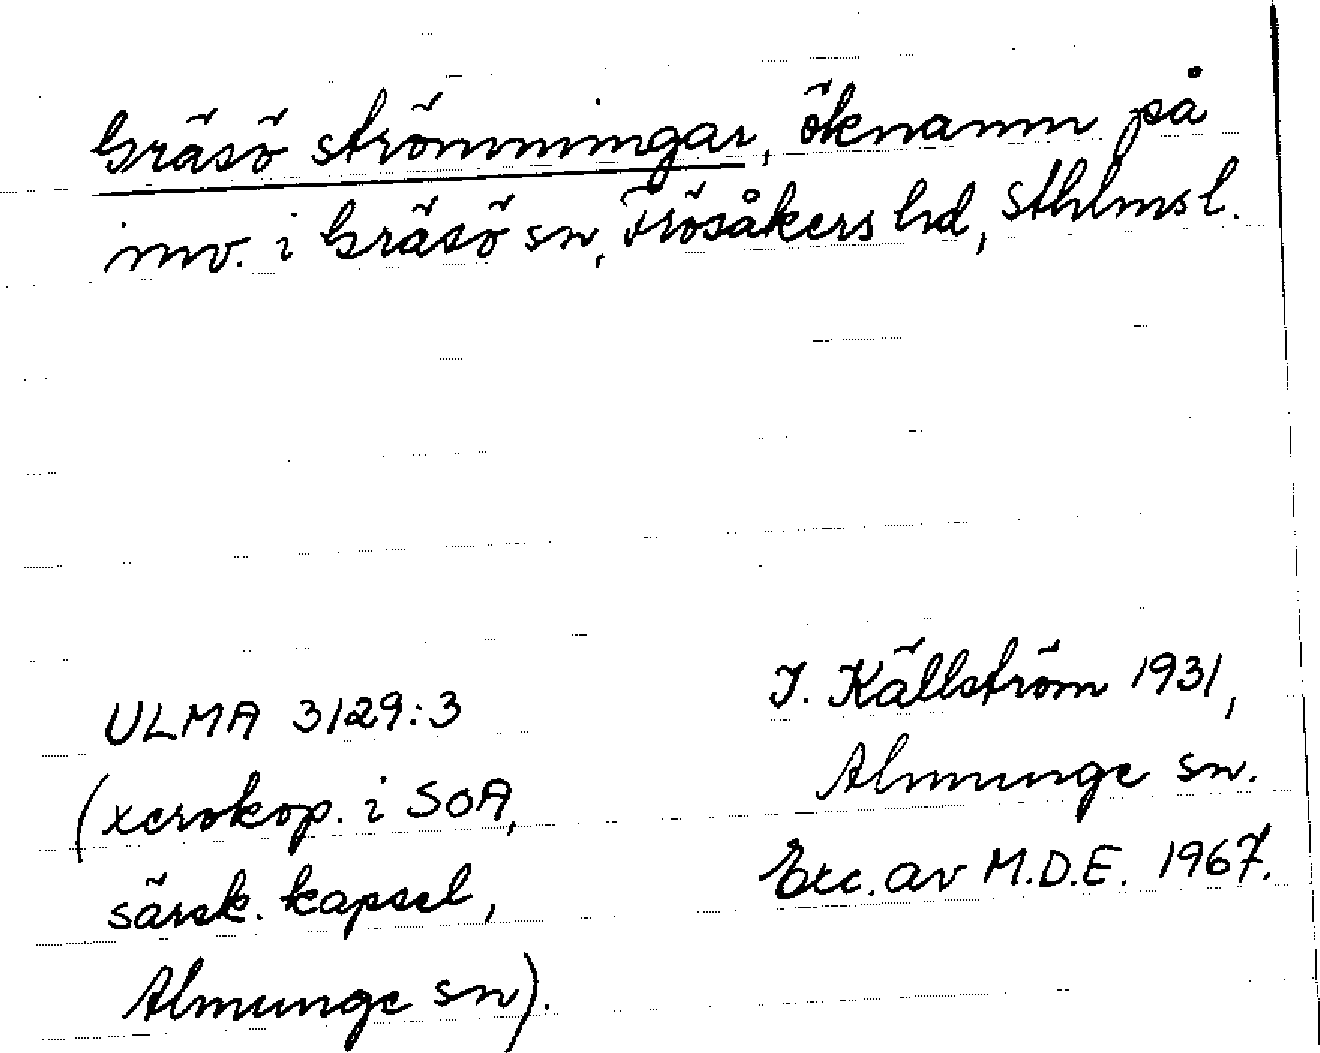 Gräsö strömmingar, öknamn på
inv. i Gräsö sn, Frösåkers hd, Sthlms l.
ULMA 3129:3
(xerokop. i SOA,
särsk. kapsel,
Almunge sn).
I. Källström 1931,
Almunge sn.
Exc. av M.D.E. 1967.